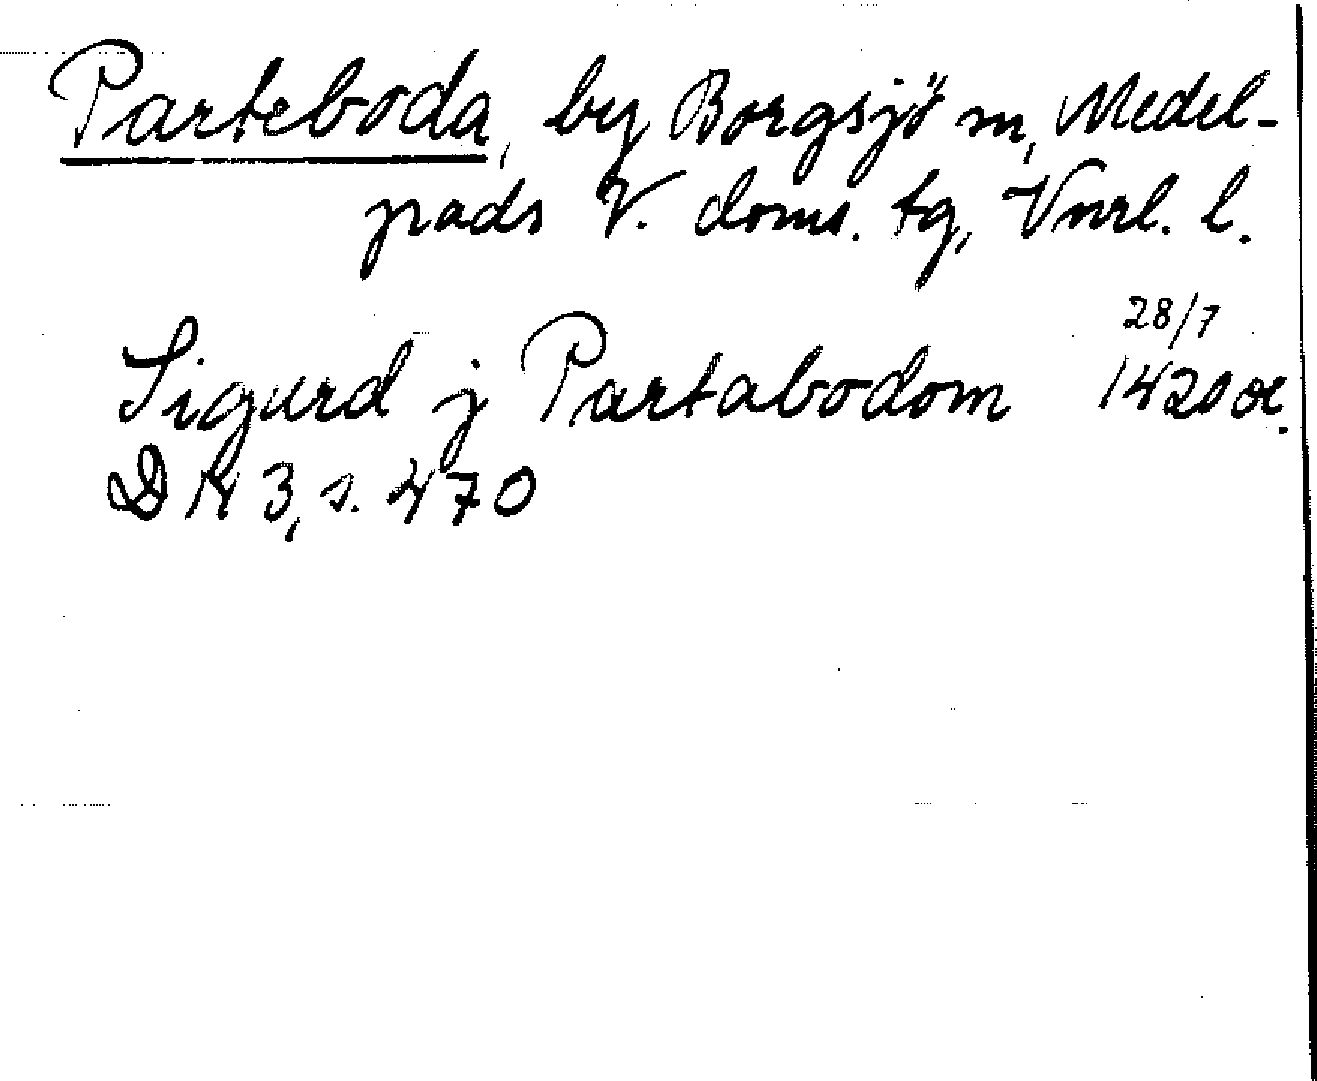 Parteboda, by Borgsjö sn, Medel-
pads V. doms. tg, Vnrl. l.
28/7
Sigurd j Partabodom 1420 or.
DN 3, s. 470